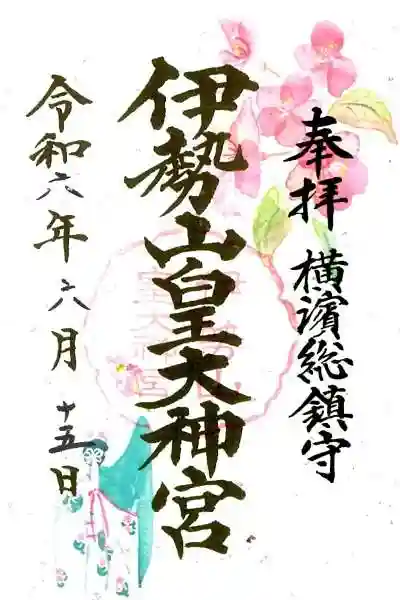 奉拝 横濱総鎮守
伊勢山皇大神宮
令和六年六月十五日